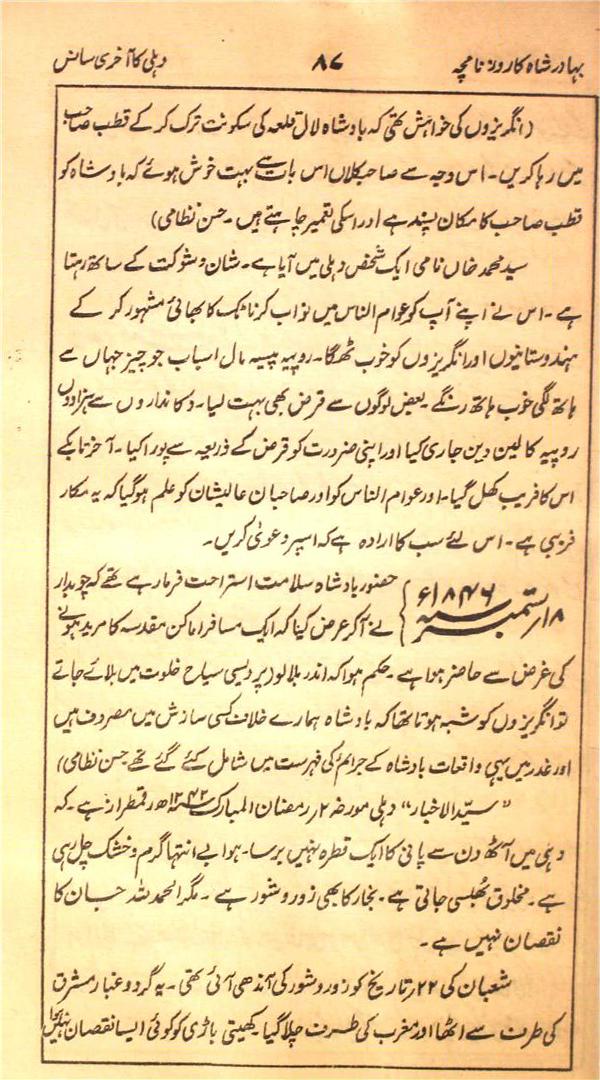 بہادر شاہ کا روزنامچہ ۸۷ دہلی کا آخری سانس
(انگریزوں کی خواہش تھی کہ بادشاہ لال قلعہ کی سکونت ترک کر کے قطب صاحب
میں رہا کریں۔ اس وجہ سے صاحبکلاں اس بات سے بہت خوش ہوئے کہ بادشاہ کو
قطب صاحب کا مکان پسند ہے اور اسکی تعمیر چاہتے ہیں۔ حسن نظامی)
سید محمد خاں نامی ایک شخص دہلی میں آیا ہے۔ شان و شوکت کے ساتھ رہتا
ہے۔ اس نے اپنے آپ کو عوام الناس میں نواب کرناٹک کا بھائی مشہور کر کے
ہندوستانیوں اور انگریزوں کو خوب ٹھگا۔ روپیہ پیسہ مال اسباب جو چیز جہاں سے
ہاتھ لگی خوب ہاتھ رنگے۔ بعض لوگوں سے قرض بھی بہت لیا۔ دکانداروں سے ہزاروں
روپیہ کا لین دین جاری کیا اور اپنی ضرورت کو قرض کے ذریعہ سے پورا کیا۔ آخر تابکے
اس کا فریب کھل گیا۔ اور عوام الناس کو اور صاحبان عالیشان کو علم ہو گیا کہ یہ مکار
فریبی ہے۔ اس لئے سب کا ارادہ ہے کہ اسپر دعویٰ کریں۔
۱۸ ستمبر ۱۸۴۶ء } حضور بادشاہ سلامت استراحت فرما رہے تھے کہ چوبدار
نے آکر عرض کیا کہ ایک مسافر اماکن مقدسہ کا مرید ہونے
کی غرض سے حاضر ہوا ہے۔ حکم ہوا کہ اندر بلا لو (پردیسی سیاح خلوت میں بلائے جاتے
تو انگریزوں کو شبہ ہوتا تھا کہ بادشاہ ہمارے خلاف کسی سازش میں مصروف ہیں
اور غدر میں یہی واقعات بادشاہ کے جرائم کی فہرست میں شامل کئے گئے تھے حسن نظامی)
"سیّد الاخبار" دہلی مورخہ ۲؍ رمضان المبارک ۱۲۶۲ھ رقمطراز ہے۔ کہ
دہلی میں آٹھ دن سے پانی کا ایک قطرہ نہیں برسا۔ ہوا بے انتہا گرم و خشک چل رہی
ہے۔ مخلوق جھلسی جاتی ہے۔ بخار کا بھی زور و شور ہے۔ مگر الحمد للہ جان کا
نقصان نہیں ہے۔
شعبان کی ۲۲؍ تاریخ کو زور و شور کی آندھی آئی تھی۔ یہ گرد و غبار مشرق
کی طرف سے اٹھا اور مغرب کی طرف چلا گیا۔ کھیتی باڑی کو کوئی ایسا نقصان نہیں ہوا